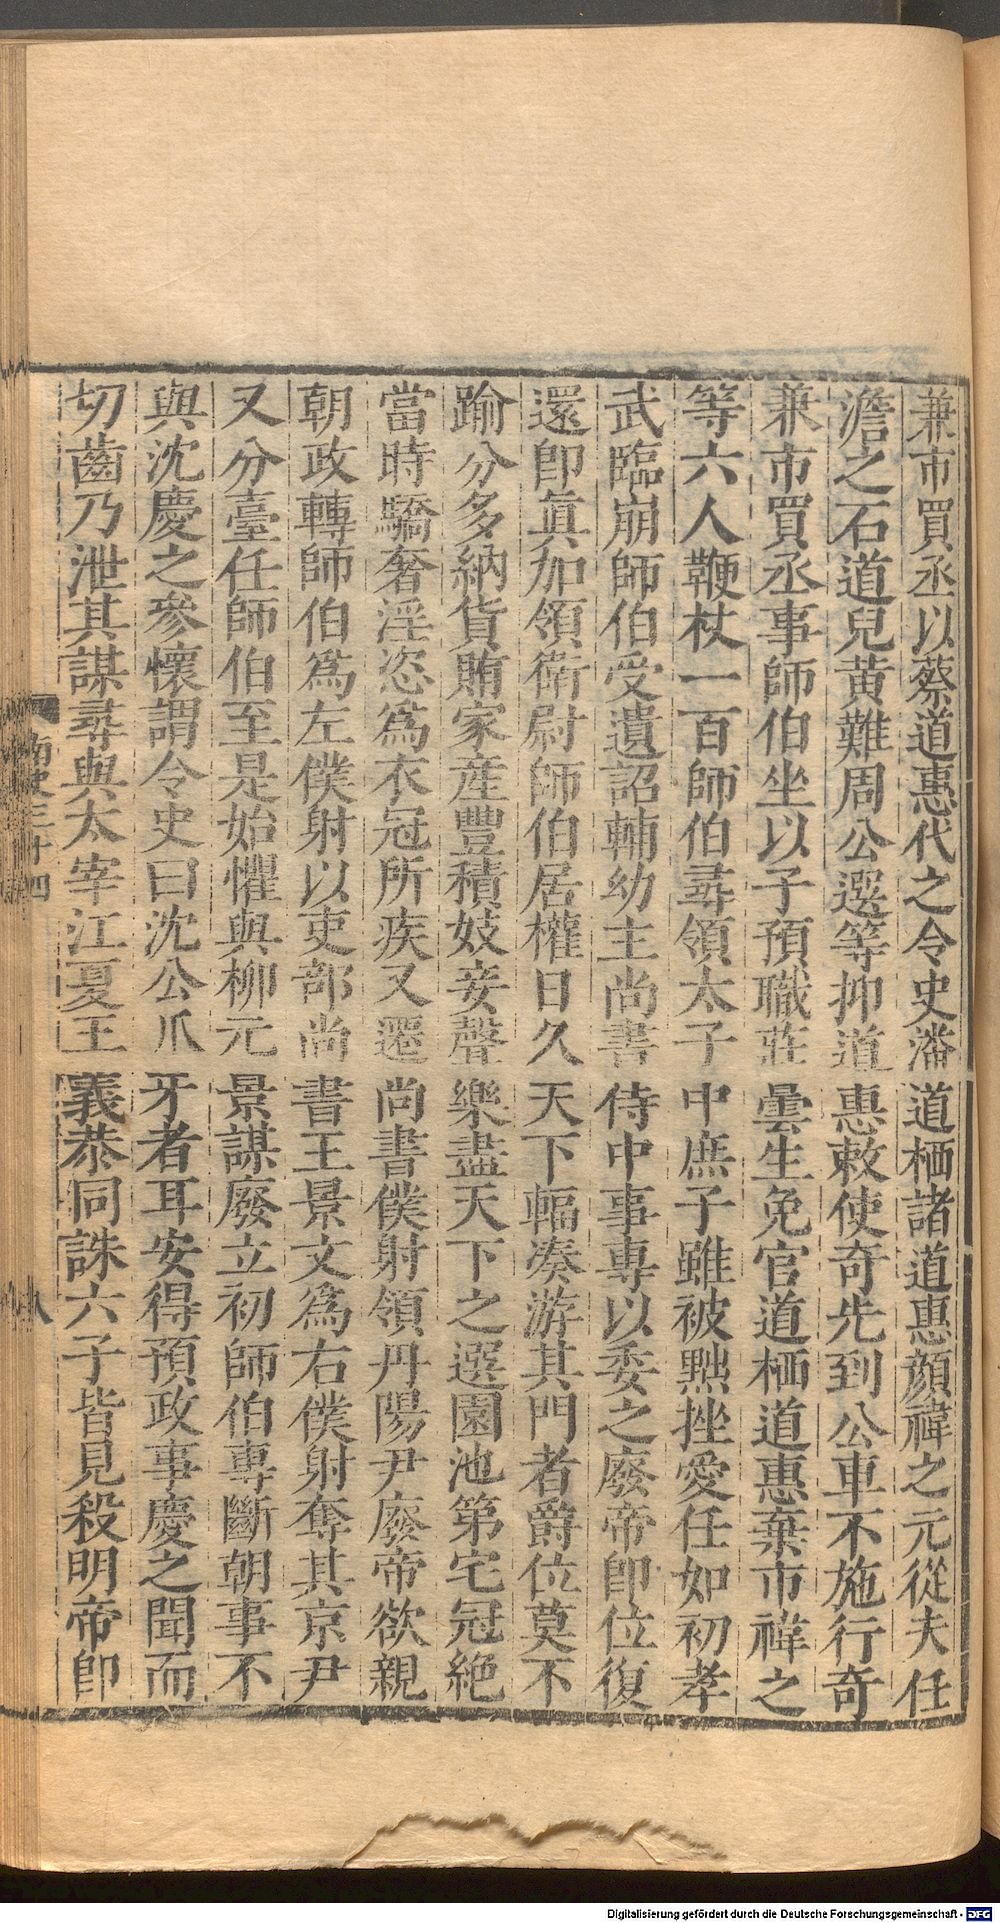 兼市買丞以蔡道惠代之令史潘道栖諸道惠顔禕之元從夫任
澹之石道兒黄難周公選等抑道惠敕使奇先到公車不施行奇
兼市買丞事師伯坐以子預職莊曇生免官道栖道惠棄市禕之
等六人鞭杖一百師伯尋領太子中庶子雖被黜挫愛任如初孝
武臨崩師伯受遺詔輔幼主尚書侍中事專以委之廢帝即位復
還即眞加領衛尉師伯居權日久天下輻湊游其門者爵位莫不
踰分多納貨賄家産豐積妓妾聲樂盡天下之選園池第宅冠絶
當時驕奢淫恣爲衣冠所疾又遷尚書僕射領丹陽尹廢帝欲親
朝政轉師伯爲左僕射以吏部尚書王景文爲右僕射奪其京尹
又分臺任師伯至是始懼與柳元景謀廢立初師伯專斷朝事不
與沈慶之參懷謂令史曰沈公爪牙者耳安得預政事慶之聞而
切齒乃泄其謀尋與太宰江夏王義恭同誅六子皆見殺明帝即
南史三十四
八
Digitalisierung gefördert durch die Deutsche Forschungsgemeinschaft - DFG